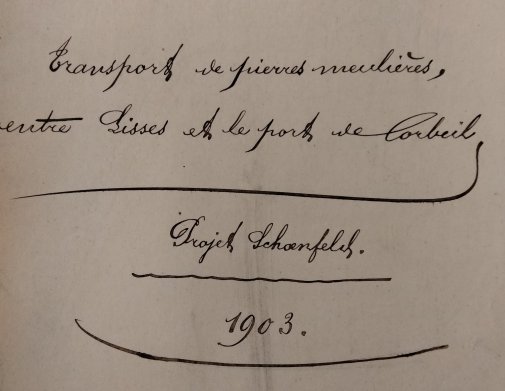 Transport de pierres meulières,
entre Lisses et le port de Corbeil
Projet Schœnfeld.
1903.